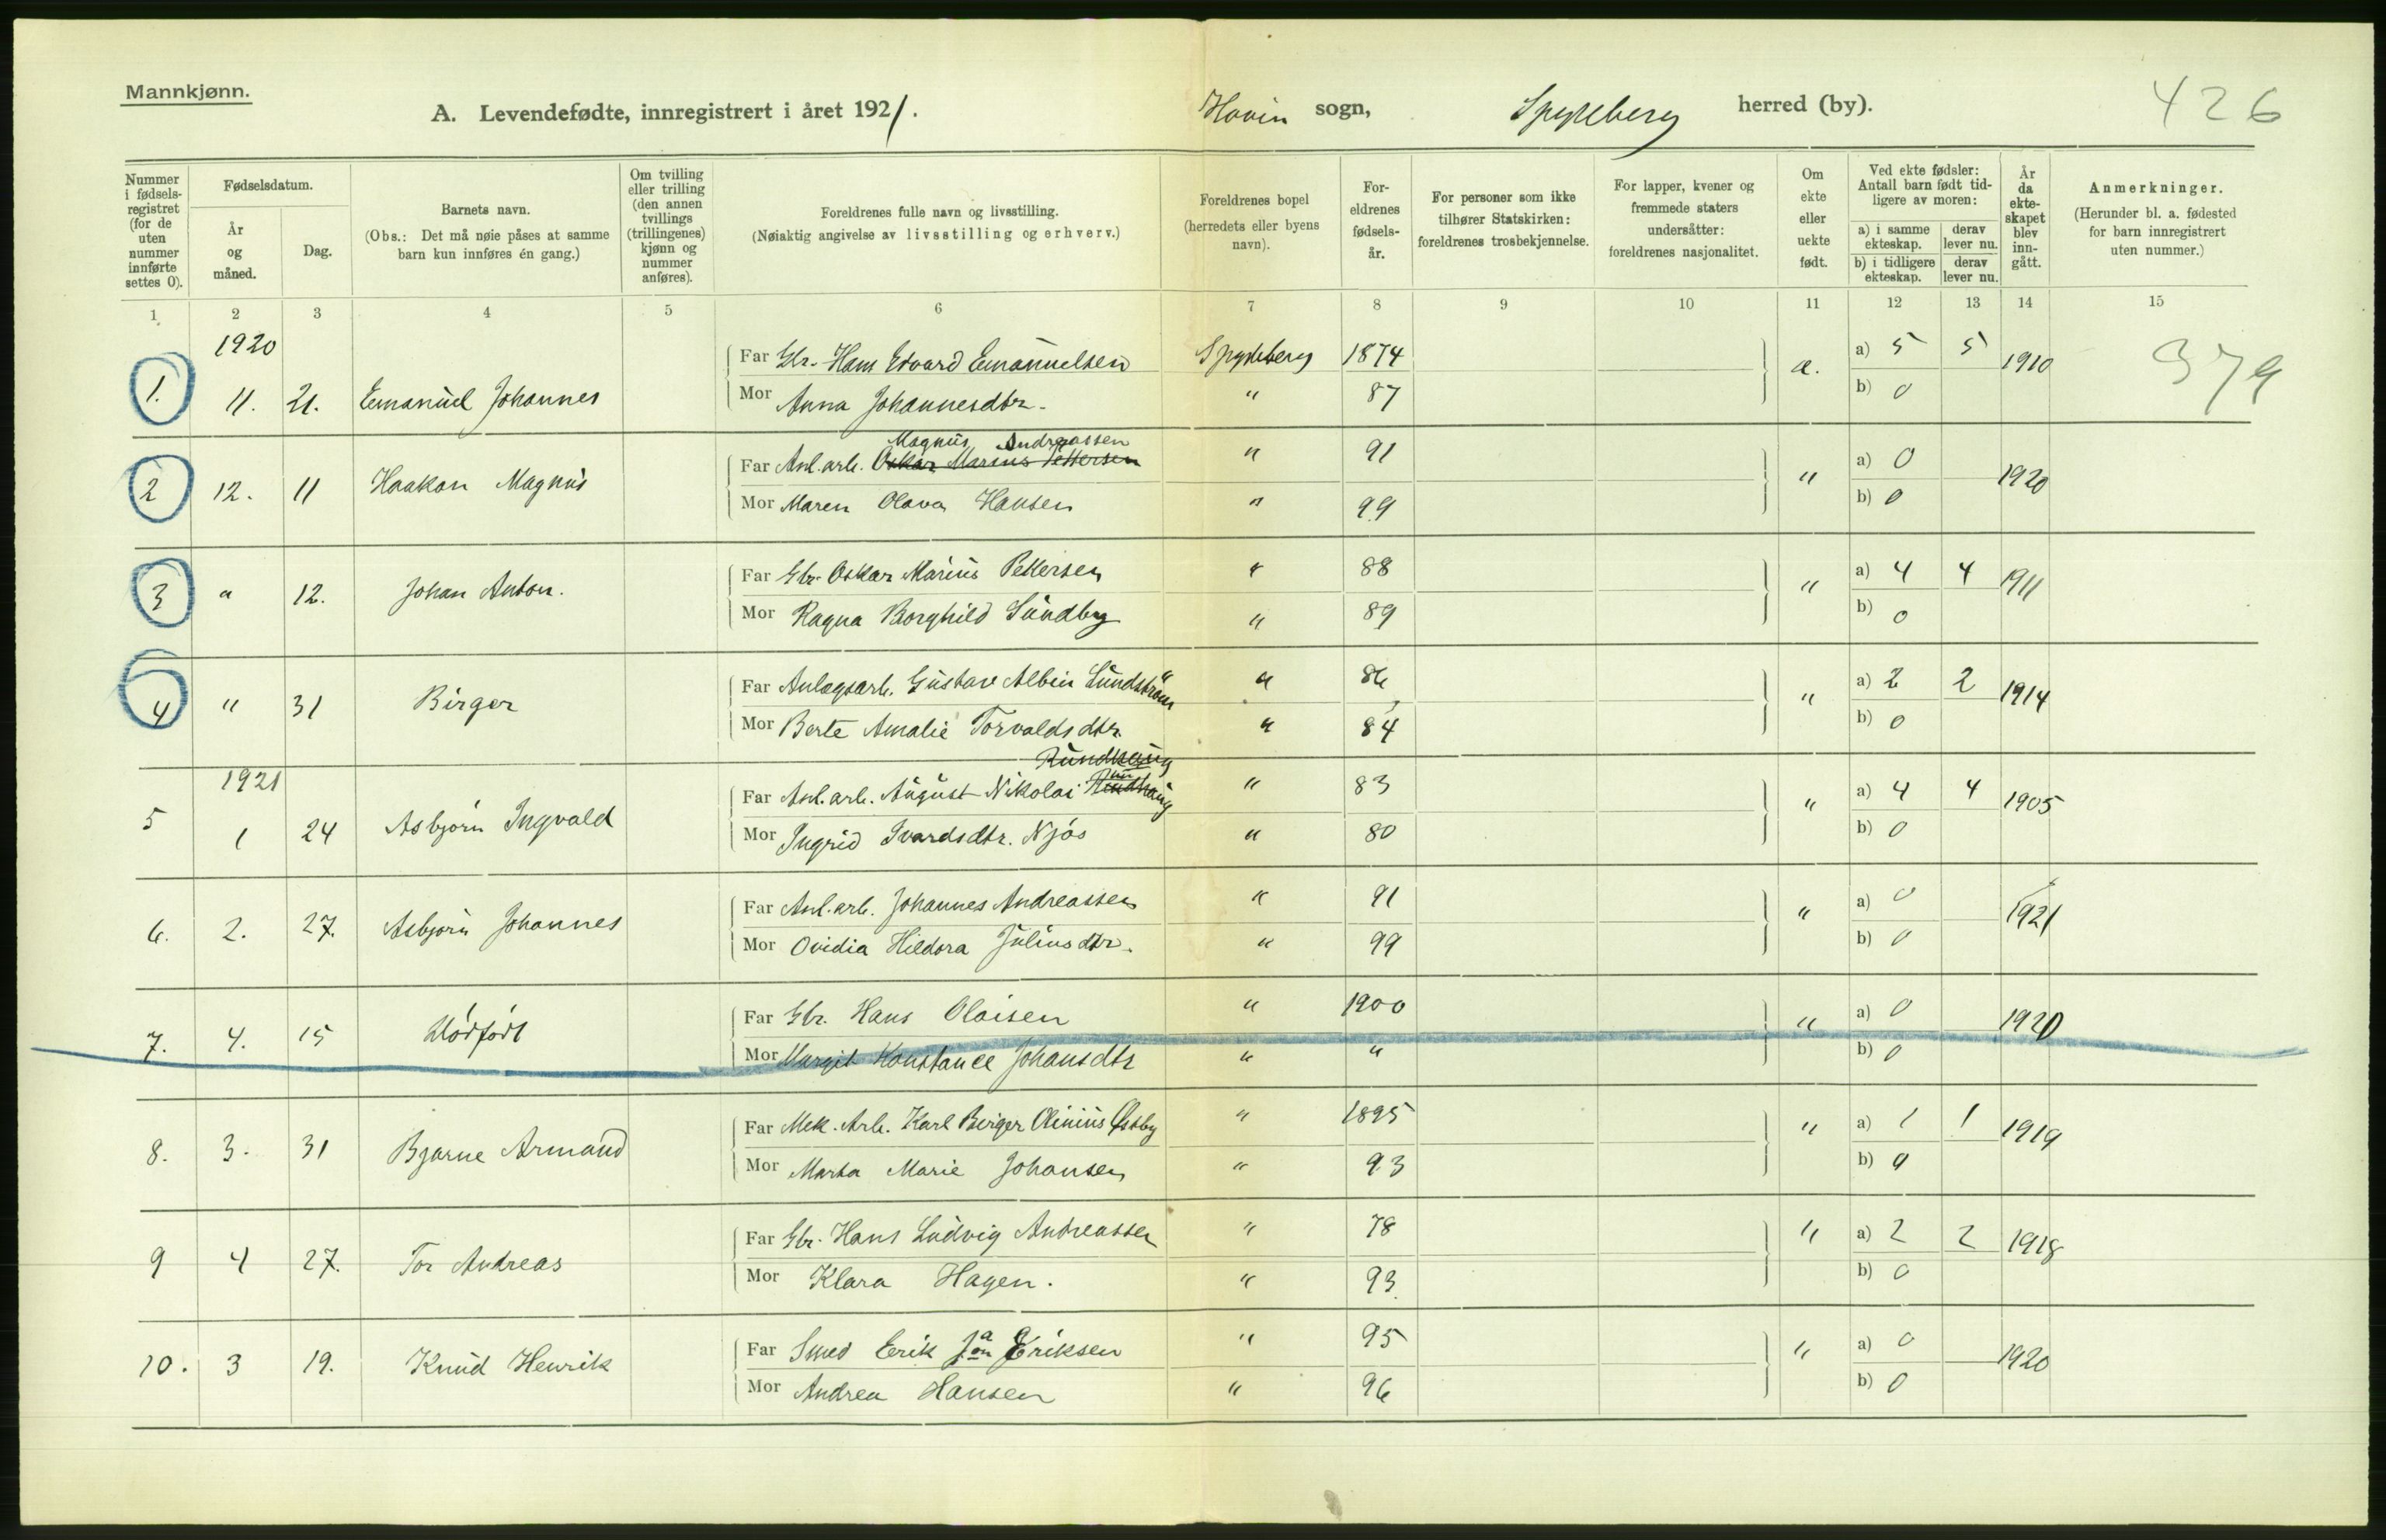 Mannkjønn.
A. Levendefødte, innregistrert i året 1921.
Hovin sogn, Spydeberg herred (by).
426
Nummer i fødsels-registret (for de uten nummer innførte settes 0).
Fødselsdatum.
År og måned.
Dag.
Barnets navn.
(Obs.: Det må nøie påses at samme barn kun innføres én gang.)
Om tvilling eller trilling (den annen tvillings (trillingenes) kjønn og nummer anføres).
Foreldrenes fulle navn og livsstilling.
(Nøiaktig angivelse av livsstilling og erhverv.)
Foreldrenes bopel
(herredets eller byens navn).
For-eldrenes fødsels-år.
For personer som ikke tilhører Statskirken: foreldrenes trosbekjennelse.
For lapper, kvener og fremmede staters undersåtter: foreldrenes nasjonalitet.
Om ekte eller uekte født.
Ved ekte fødsler: Antall barn født tid-ligere av moren:
a) i samme ekteskap.
derav lever nu.
b) i tidligere ekteskap.
derav lever nu.
År da ekte-skapet blev inn-gått.
Anmerkninger.
(Herunder bl. a. fødested for barn innregistrert uten nummer.)
1 2 3 4 5 6 7 8 9 10 11 12 13 14 15
1920
1. 11. 21. Emanuel Johannes Far Gbr. Hans Edvard Emanuelsen Spydeberg 1874 a) 5 5 1910 379
Mor Anna Johannesdtr. " 87 b) 0
Magnus Andreassen
2 12. 11 Haakon Magnus Far Anl. arb. Oskar Marius Pettersen " 91 " a) 0 1920
Mor Maren Olava Hansen " 99 b) 0
3 " 12. Johan Anton. Far Gbr. Oskar Marius Pettersen " 88 " a) 4 4 1911
Mor Ragna Borghild Sundby " 89 b) 0
4 " 31 Birger Far Anlegsarb. Gustav Albin Lundström " 86 " a) 2 2 1914
Mor Berte Amalie Torvaldsdtr. " 84 b) 0
1921
5 1 24 Asbjørn Ingvald Far Anl. arb. August Nikolai " 83 " a) 4 4 1905
Mor Ingrid Ivarsdtr. Njøs " 80 b) 0
6. 2. 27. Asbjørn Johannes Far Anl. arb. Johannes Andreassen " 91 " a) 0 1921
Mor Ovidia Hildora Juliusdtr. " 99 b) 0
7. 4. 15 Dødfødt Far Gbr. Hans Olaisen " 1900 " a) 0 1920
Mor Margit Konstance Johansdtr " " b) 0
8. 3. 31 Bjarne Armand Far Mek. Arb. Karl Birger Olinius Østby " 1895 " a) 1 1 1919
Mor Marta Marie Johansen " 93 b) 0
9 4 27. Tor Andreas Far Gbr. Hans Ludvig Andreassen " 78 " a) 2 2 1918
Mor Klara Hagen. " 93. b) 0
10. 3 19. Knud Henrik Far Smed Erik Jan Eriksen " 95 " a) 0 1920
Mor Andrea Hansen " 96 b) 0